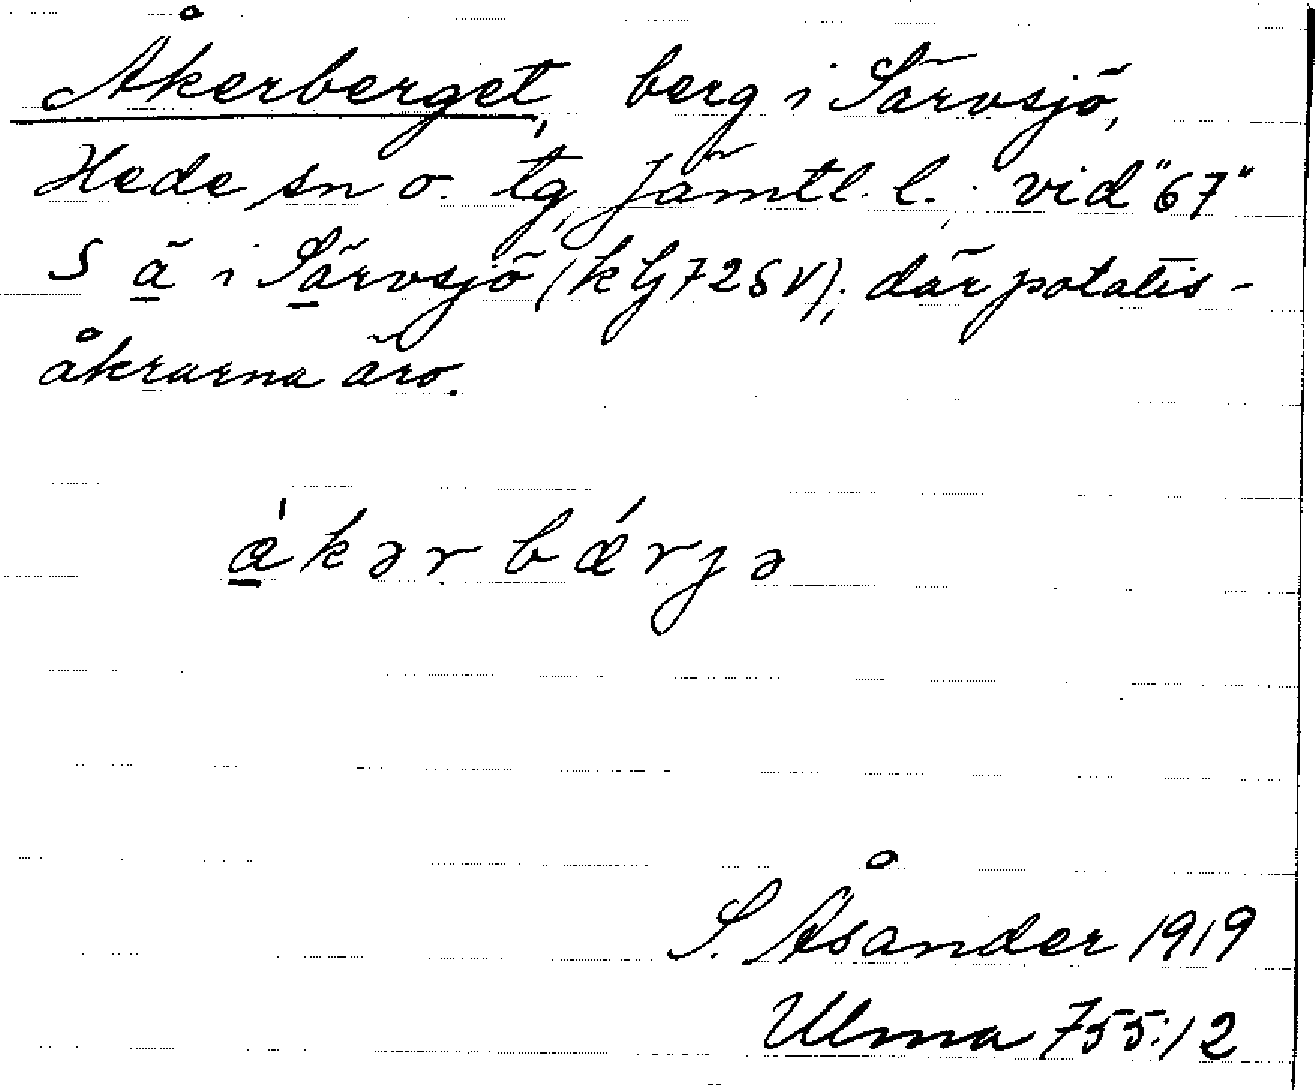 Åkerberget, berg i Särvsjö,
Hede sn o. tg, Jämtl. l. vid "67"
S ä i Särvsjö (k G725V); där potatis-
åkrarna äro.
æ̀kər bǽrjə
S. Åsander 1919
Ulma 755:12